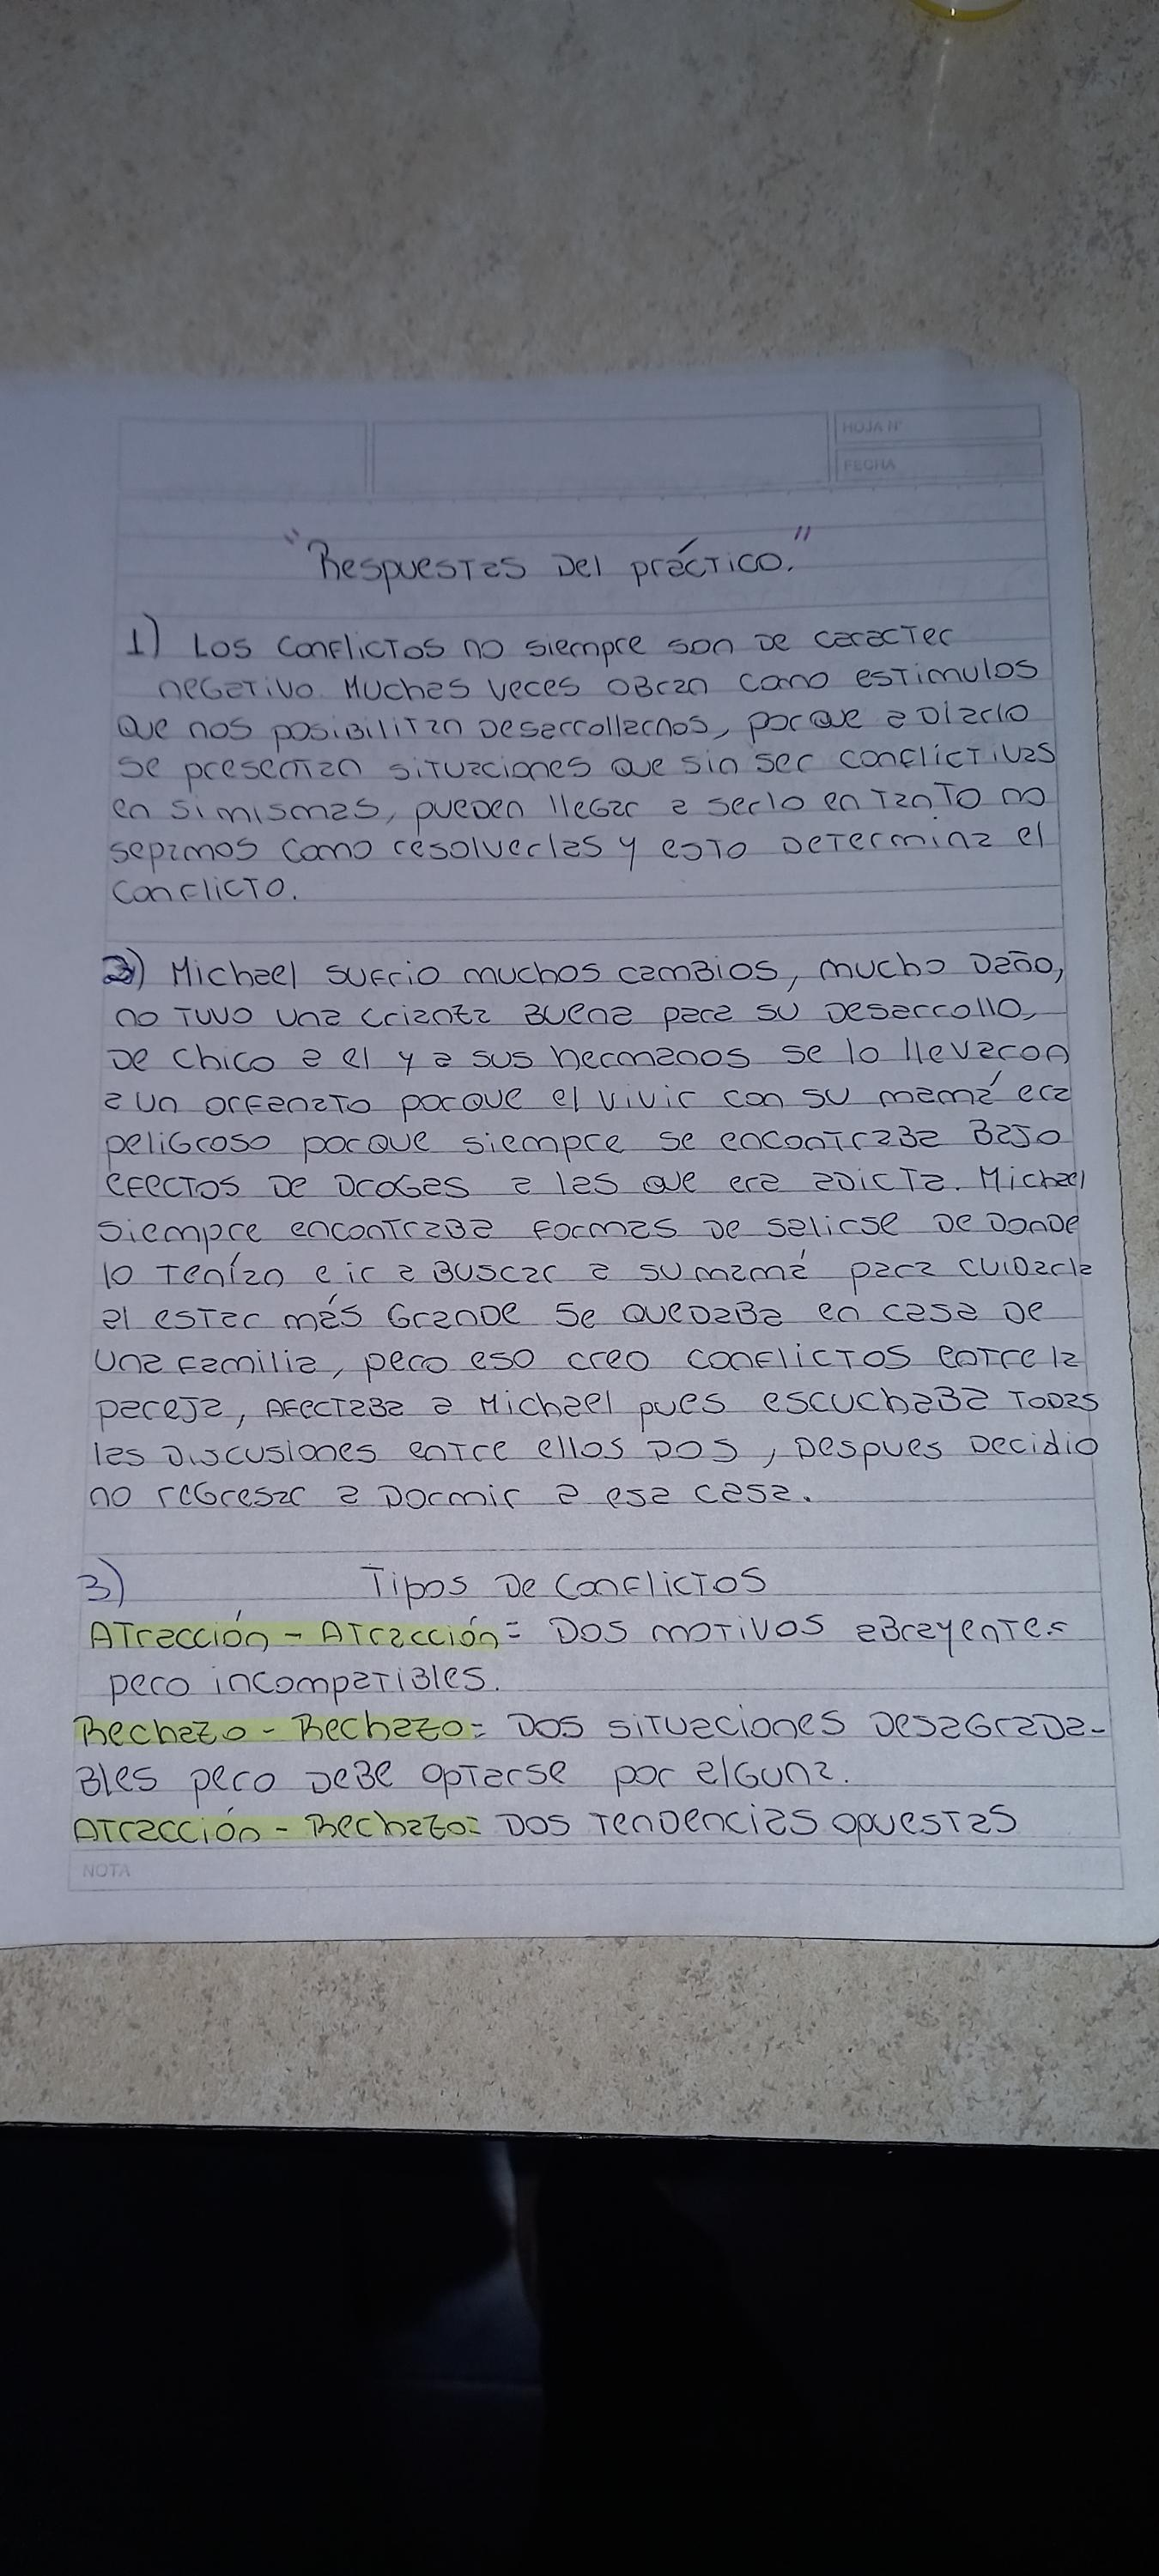 HOJA N°
FECHA
"Respuestas Del práctico."
1) Los conflictos no siempre son de caracter
negativo. Muchas veces obran como estimulos
que nos posibilitan desarrollarnos, porque a diario
se presentan situaciones que sin ser conflictivas
en si mismas, pueden llegar a serlo en tanto no
sepamos como resolverlas y esto determina el
conflicto.
2) Michael sufrio muchos cambios, mucho daño,
no tuvo una crianza buena para su desarrollo,
de chico a el y a sus hermanos se lo llevaron
a un orfanato porque el vivir con su mamá era
peligroso porque siempre se encontraba bajo
efectos de drogas a las que era adicta. Michael
siempre encontraba formas de salirse de donde
lo tenían e ir a buscar a su mamá para cuidarla
al estar más grande se quedaba en casa de
una familia, pero eso creo conflictos entre la
pareja, afectaba a Michael pues escuchaba todas
las discusiones entre ellos dos, despues decidio
no regresar a dormir a esa casa.
3) Tipos de conflictos
Atracción - Atracción = Dos motivos abrayentes
pero incompatibles.
Rechazo - Rechazo = Dos situaciones desagrada-
bles pero debe optarse por alguna.
Atracción - Rechazo = Dos tendencias opuestas
NOTA